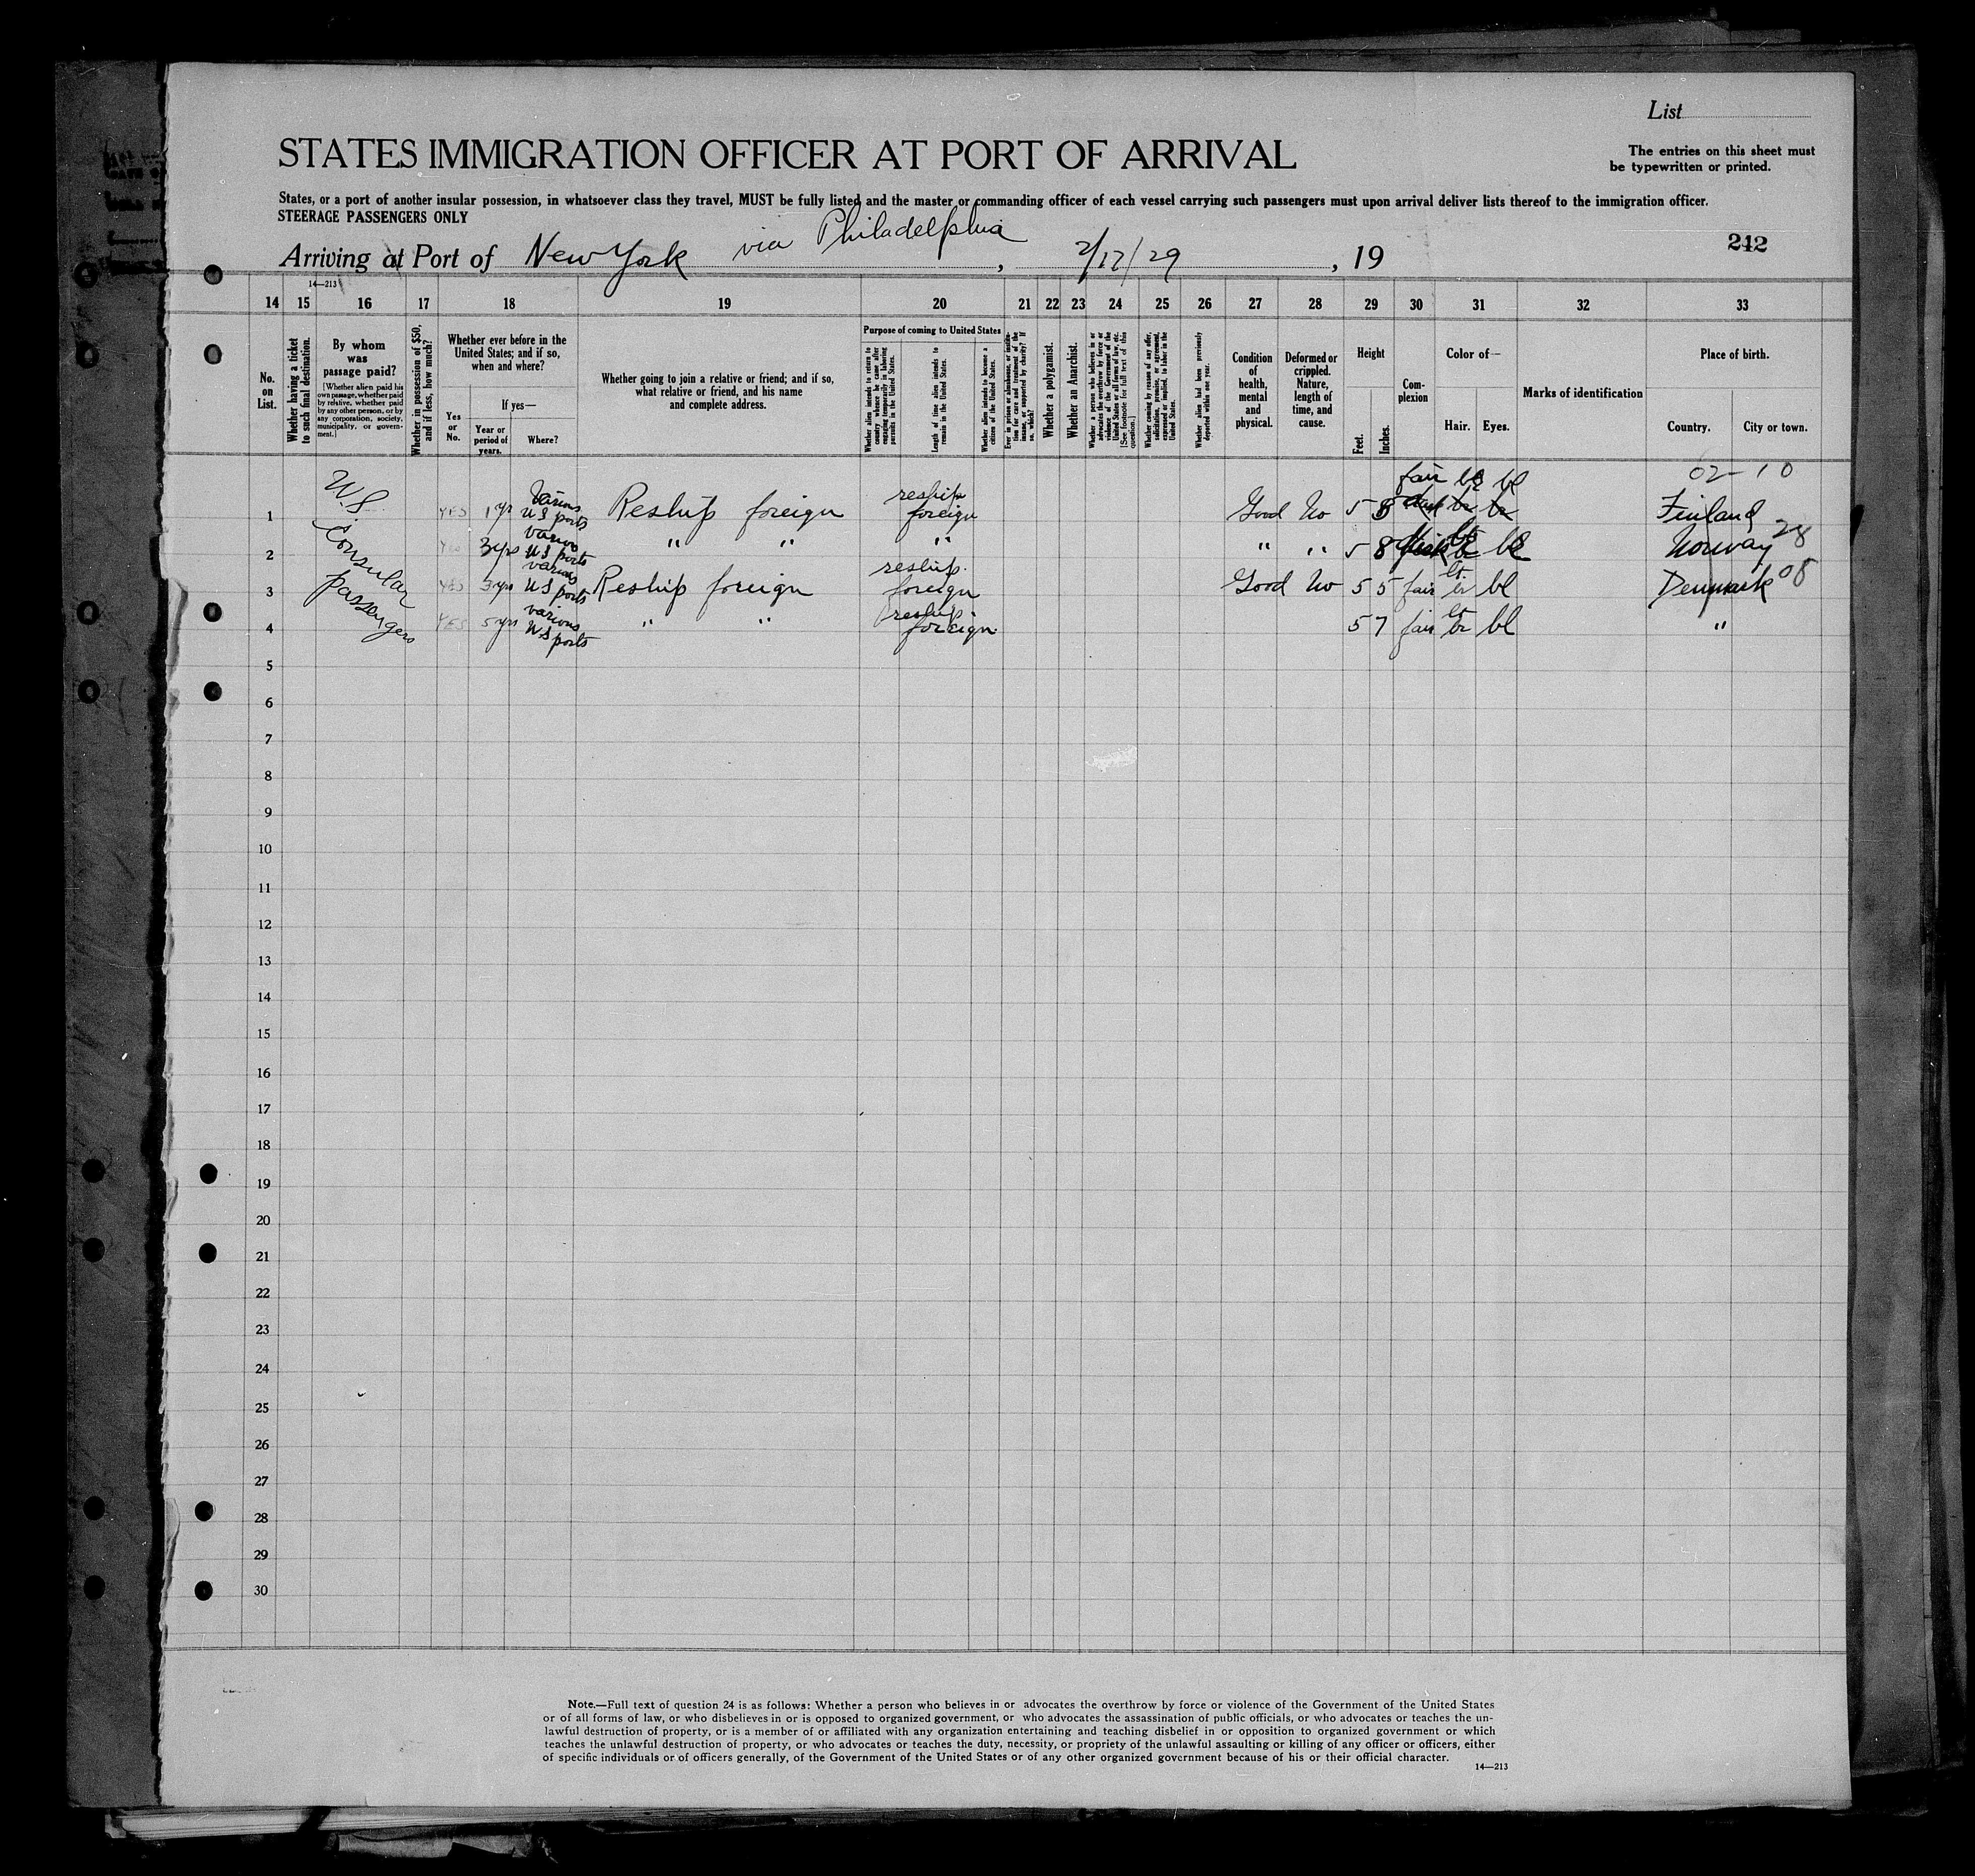 List
STATES IMMIGRATION OFFICER AT PORT OF ARRIVAL
The entries on this sheet must
be typewritten or printed.
States, or a port of another insular possession, in whatsoever class they travel, MUST be fully listed and the master or commanding officer of each vessel carrying such passengers must upon arrival deliver lists thereof to the immigration officer.
STEERAGE PASSENGERS ONLY
Arriving at Port of New York via Philadelphia, 2/17/29, 19
242
14—213
14 15 16 17 18 19 20 21 22 23 24 25 26 27 28 29 30 31 32 33
No. on List.
Whether having a ticket to such final destination.
By whom was passage paid?
[Whether alien paid his own passage, whether paid by relative, whether paid by any other person, or by any corporation, society, municipality, or government.]
Whether in possession of $50, and if less, how much?
Whether ever before in the United States; and if so, when and where?
Yes or No.
If yes—
Year or period of years.
Where?
Whether going to join a relative or friend; and if so, what relative or friend, and his name and complete address.
Purpose of coming to United States
Whether alien intends to return to country whence he came after engaging temporarily in laboring pursuits in the United States.
Length of time alien intends to remain in the United States.
Whether alien intends to become a citizen of the United States.
Ever in prison or almshouse, or institution for care and treatment of the insane, or supported by charity? If so, which?
Whether a polygamist.
Whether an Anarchist.
Whether a person who believes in or advocates the overthrow by force or violence of the Government of the United States or all forms of law, etc. [See footnote for full text of this question.]
Whether coming by reason of any offer, solicitation, promise, or agreement, expressed or implied, to labor in the United States.
Whether alien had been previously deported within one year.
Condition of health, mental and physical.
Deformed or crippled. Nature, length of time, and cause.
Height
Feet. Inches.
Complexion
Color of—
Hair. Eyes.
Marks of identification
Place of birth.
Country. City or town.
US Consular passengers
02-10
1 YES 1 yr Various US ports Reship foreign reship foreign Good No 5 8 fair bl Finland
2 Yes 3 yrs various US ports " " " " " 5 8 bl Norway 28
3 YES 3 yrs various US ports Reship foreign reship. foreign Good No 5 5 fair lt br bl Denmark 08
4 YES 5 yrs various US ports " " reship foreign 5 7 fair lt br bl "
5
6
7
8
9
10
11
12
13
14
15
16
17
18
19
20
21
22
23
24
25
26
27
28
29
30
Note.—Full text of question 24 is as follows: Whether a person who believes in or advocates the overthrow by force or violence of the Government of the United States
or of all forms of law, or who disbelieves in or is opposed to organized government, or who advocates the assassination of public officials, or who advocates or teaches the un-
lawful destruction of property, or is a member of or affiliated with any organization entertaining and teaching disbelief in or opposition to organized government or which
teaches the unlawful destruction of property, or who advocates or teaches the duty, necessity, or propriety of the unlawful assaulting or killing of any officer or officers, either
of specific individuals or of officers generally, of the Government of the United States or of any other organized government because of his or their official character.
14—213